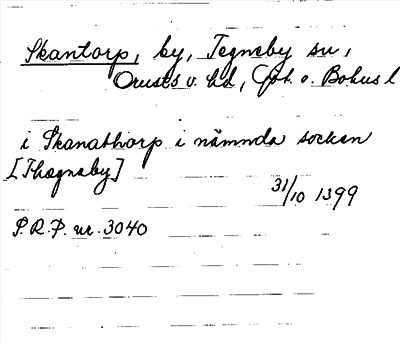 Skantorp, by, Tegneby sn,
Orusts v. hd, Gbt. o. Bohus l
i Skanathorp i nämnda socken
[Thegnaby]
31/10 1399
P.R.P. nr. 3040